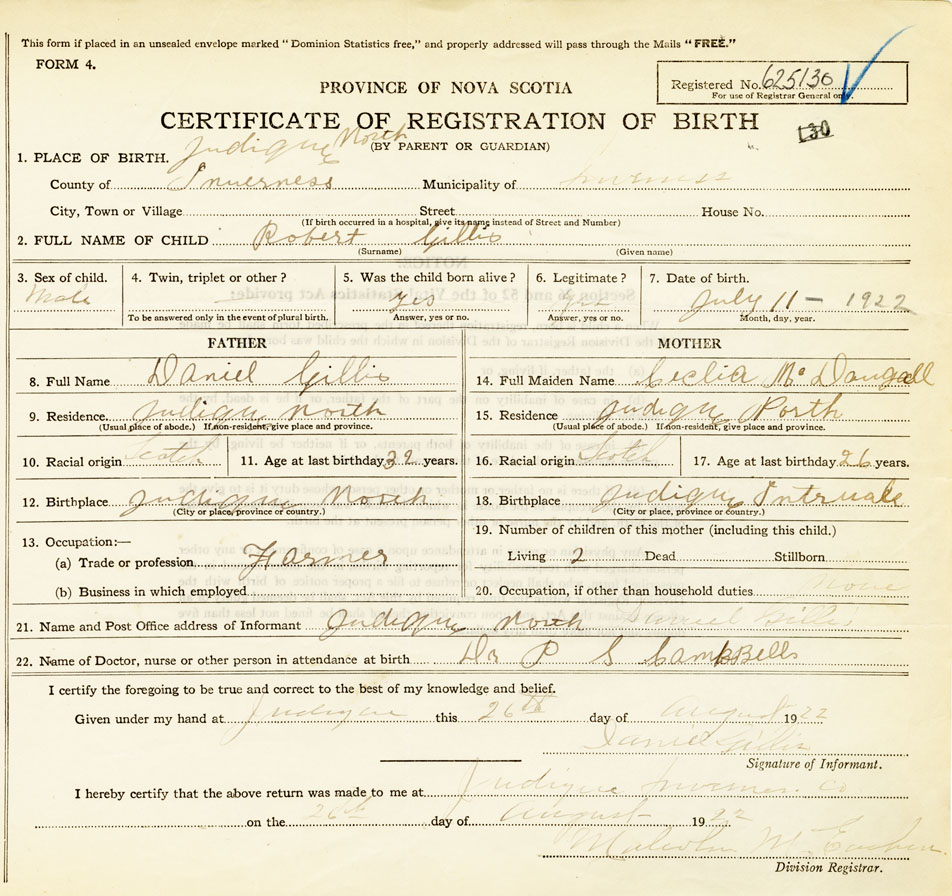 This form if placed in an unsealed envelope marked "Dominion Statistics free," and properly addressed will pass through the Mails "FREE."
FORM 4.
Registered No. 625130
For use of Registrar General only.
PROVINCE OF NOVA SCOTIA
CERTIFICATE OF REGISTRATION OF BIRTH
130
(BY PARENT OR GUARDIAN)
1. PLACE OF BIRTH. Judique North
County of Inverness Municipality of Inverness
City, Town or Village Street House No.
(If birth occurred in a hospital, give its name instead of Street and Number)
2. FULL NAME OF CHILD Robert Gillis
(Surname) (Given name)
3. Sex of child. 4. Twin, triplet or other? 5. Was the child born alive? 6. Legitimate? 7. Date of birth.
Male yes yes July 11 - 1922
To be answered only in the event of plural birth. Answer, yes or no. Answer, yes or no. Month, day, year.
FATHER MOTHER
8. Full Name Daniel Gillis 14. Full Maiden Name Ceclia Mc Dougall
9. Residence. Judique North 15. Residence Judique North
(Usual place of abode.) If non-resident, give place and province. (Usual place of abode.) If non-resident, give place and province.
10. Racial origin Scotch 11. Age at last birthday 32 years. 16. Racial origin Scotch 17. Age at last birthday 26 years.
12. Birthplace Judique North 18. Birthplace Judique Intervale
(City or place, province or country.) (City or place, province or country.)
13. Occupation:— 19. Number of children of this mother (including this child.)
(a) Trade or profession Farmer Living 2 Dead Stillborn
(b) Business in which employed 20. Occupation, if other than household duties None
21. Name and Post Office address of Informant Judique North Daniel Gillis
22. Name of Doctor, nurse or other person in attendance at birth Dr P S CampBells
I certify the foregoing to be true and correct to the best of my knowledge and belief.
Given under my hand at Judique this 26th day of August 1922
Daniel Gillis
Signature of Informant.
I hereby certify that the above return was made to me at Judique Inverness Co
on the 26th day of August 1922
Malcolm McEachen
Division Registrar.